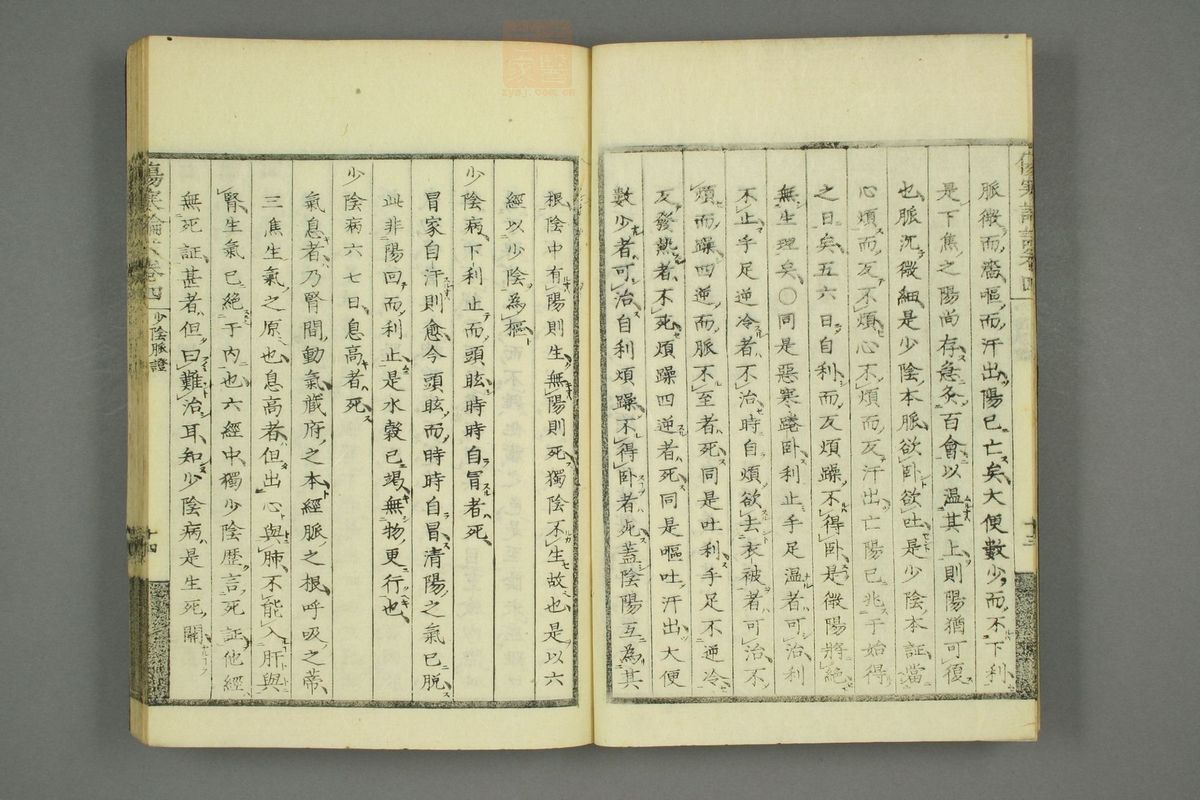 脈微而嘔嘔而汗出陽已亡矣大便數少而不下利
是下焦之陽尚存急灸百會以溫其上則陽猶可復
也脈沉微細是少陰本脈欲臥欲吐是少陰本証當
心煩而反不煩心不煩而反汗出亡陽已兆于始得
之日矣五六日自利而反煩躁不得臥是微陽將絕
無生理矣○同是惡寒踡臥利止手足溫者可治利
不止手足逆冷者不治時自煩欲去衣被者可治不
煩而躁四逆而脈不至者死同是吐利手足不逆冷
反發熱者不死煩躁四逆者死同是嘔吐汗出大便
數少者可治自利煩躁不得臥者死蓋陰陽互為其
十三
根陰中有陽則生無陽則死獨陰不生故也是以六
經以少陰為樞
少陰病下利止而頭眩時時自冒者死
冒家自汗則愈今頭眩而時時自冒清陽之氣已脫
此非陽回而利止是水穀已竭無物更行也
少陰病六七日息高者死
氣息者乃腎間動氣藏府之本經脈之根呼吸之蒂
三焦生氣之原也息高者但出心與肺不能入肝與
腎生氣已絕于內也六經中獨少陰歷言死証他經
無死証甚者但曰難治耳知少陰病是生死關
卷四
少陰脈證
十四